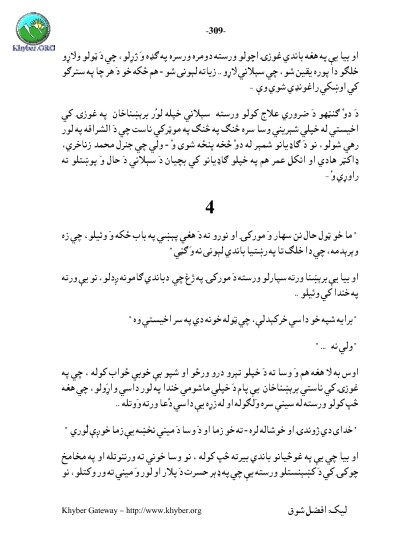 -309-
Khyber.ORG
او بيا يې په هغه باندي غوزۍ اچولو ورسته دومره ورسره په ګډه وَ ژړلو، چي دَ ټولو ولاړو
خلګو دا پوره يقين شو، چي سپلانۍ لاړو .. زياته لېونۍ شو - هم ځکه خو دَ هر چا په سترګو
کي اوښکي راغونډي شوي وې -
دَ دوْ ګنټهو دَ ضروري علاج کولو ورسته سپلانۍ خپله لوْر برېښناخان په غوزۍ کي
اخيستې له خپلي شېريني وسا سره څنګ په څنګ په موټر کي ناست چي دَ الشراقه په لور
رهي شولو، نو دَ ګاډيانو شمېر له دوْ څخه پنځه شوی وْ - ولي چي جنرل محمد زناخري،
ډاکټر هادي او انکل عمر هم په خپلو ګاډيانو کي بچيان دَ سپلانۍ دَ حال وَ پوښتلو ته
راوړي وْ -
4
"ما خو ټول حال نن سهار وَ مورکۍ او نورو ته دَ هغې پېښي په باب ځکه وَ وئيلو، چي زه
وېرېدمه، چي دا خلګ تا په رښتيا باندي لېونۍ نه وَ ګڼي"
او بيا يې برېښنا ورته سپارلو ورسته دَ مورکۍ په ژغ چي دباندي ګامونه ږدلو، نو يې ورته
په خندا کي وئيلو ..
"برايه شپه خو داسي خرکېدلې، چي ټوله خونه دي په سر اخيستې وه"
"ولي نه ... "
اوس به لا هغه هم وَ وسا ته دَ خپلو تېرو درو ورځو او شپو بې خوبي ځواب کوله ، چي په
غوزۍ کي ناستي برېښناخان يې پام دَ خپلي ماشومي خندا په لور داسي واړولو، چي هغه
ځپ کولو ورسته له سينې سره وَ لګوله او له زړه يې داسي دُعا ورته وَ وتله ..
"خدای دي ژوندۍ او خوشاله لره - ته خو زما او دَ وسا دَ ميني نخښه يې زما خوږې لوري"
او بيا چي يې په غوځيانو باندي بېرته ځپ کوله ، نو وسا خوني ته ورننوتله او په مخامخ
چوکۍ کي دَ کښېنستلو ورسته يې چي په ډېر حسرت دَ پلار او لور وَ ميني ته ور وَ کتلو، نو
Khyber Gateway – http://www.khyber.org
ليک: افضل شوق